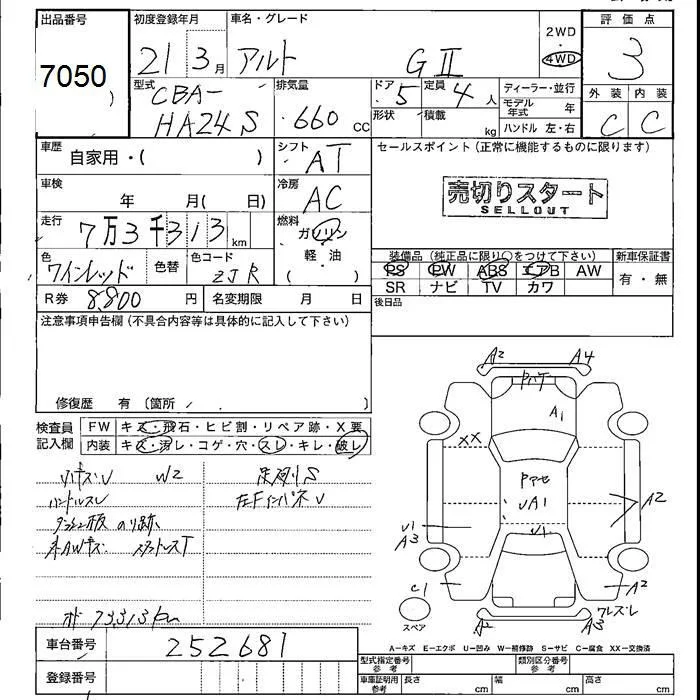 出品番号 初度登録年月 車名・グレード 2WD 評価点
7050 21 3月 アルト GⅡ ・ 4WD 3
)
型式 CBA- 排気量 ドア 5 定員 4人 ディーラー・並行 外装 内装
HA24S 660 cc 形状 積載 kg モデル年式 年 C C
ハンドル 左・右
車歴 自家用・( ) シフト AT セールスポイント(正常に機能するものに限ります)
車検 年 月( 日) 冷房 AC 売切りスタート
SELLOUT
走行 7万3千313km 燃料 ガソリン
軽・油
( )
色 ワインレッド 色替 色コード ZJR 装備品(純正品に限り○をつけて下さい) 新車保証書
PS PW ABS エアB AW 有・無
R券 8,800円 名変期限 月 日 SR ナビ TV カワ
後日品
注意事項申告欄(不具合内容等は具体的に記入して下さい)
修復歴 有(箇所 )
検査員 FW キズ・飛石・ヒビ割・リペア跡・X要
記入欄 内装 キズ・汚レ・コゲ・穴・スレ・キレ・破レ
W2
ハンドルスレ
メ 73,313km
A2 A4
A1
XX
A1 A2
A3
C1 A2
スペア A3
A―キズ E―エクボ U―凹み W―補修跡 S―サビ C―腐食 XX―交換済
車台番号 252681 型式指定番号 参考 類別区分番号 参考
登録番号 車庫証明用 参考 長さ cm 幅 cm 高さ cm